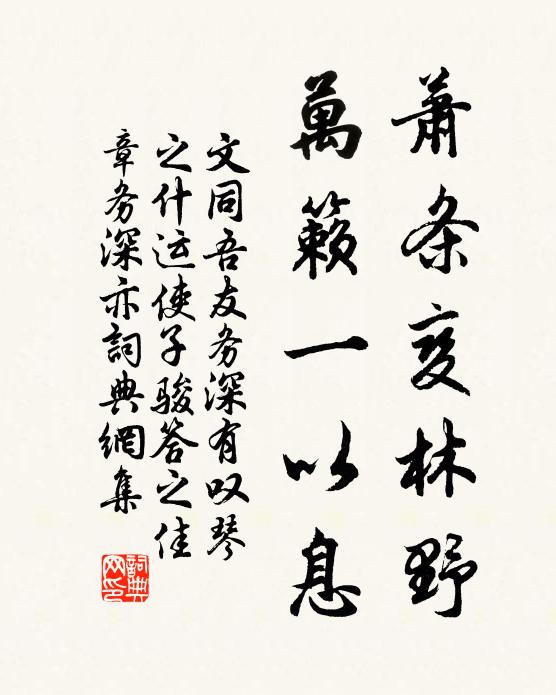 蕭条变林野
萬籟一以息
文同吾友务深有叹琴
之什运使子骏答之佳
章务深亦詞典網集
詞典
网印